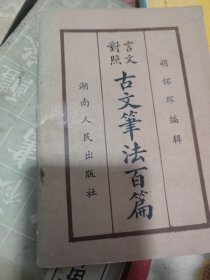 胡怀琛編辑
言文
對照
古文筆法百篇
湖南人民出版社